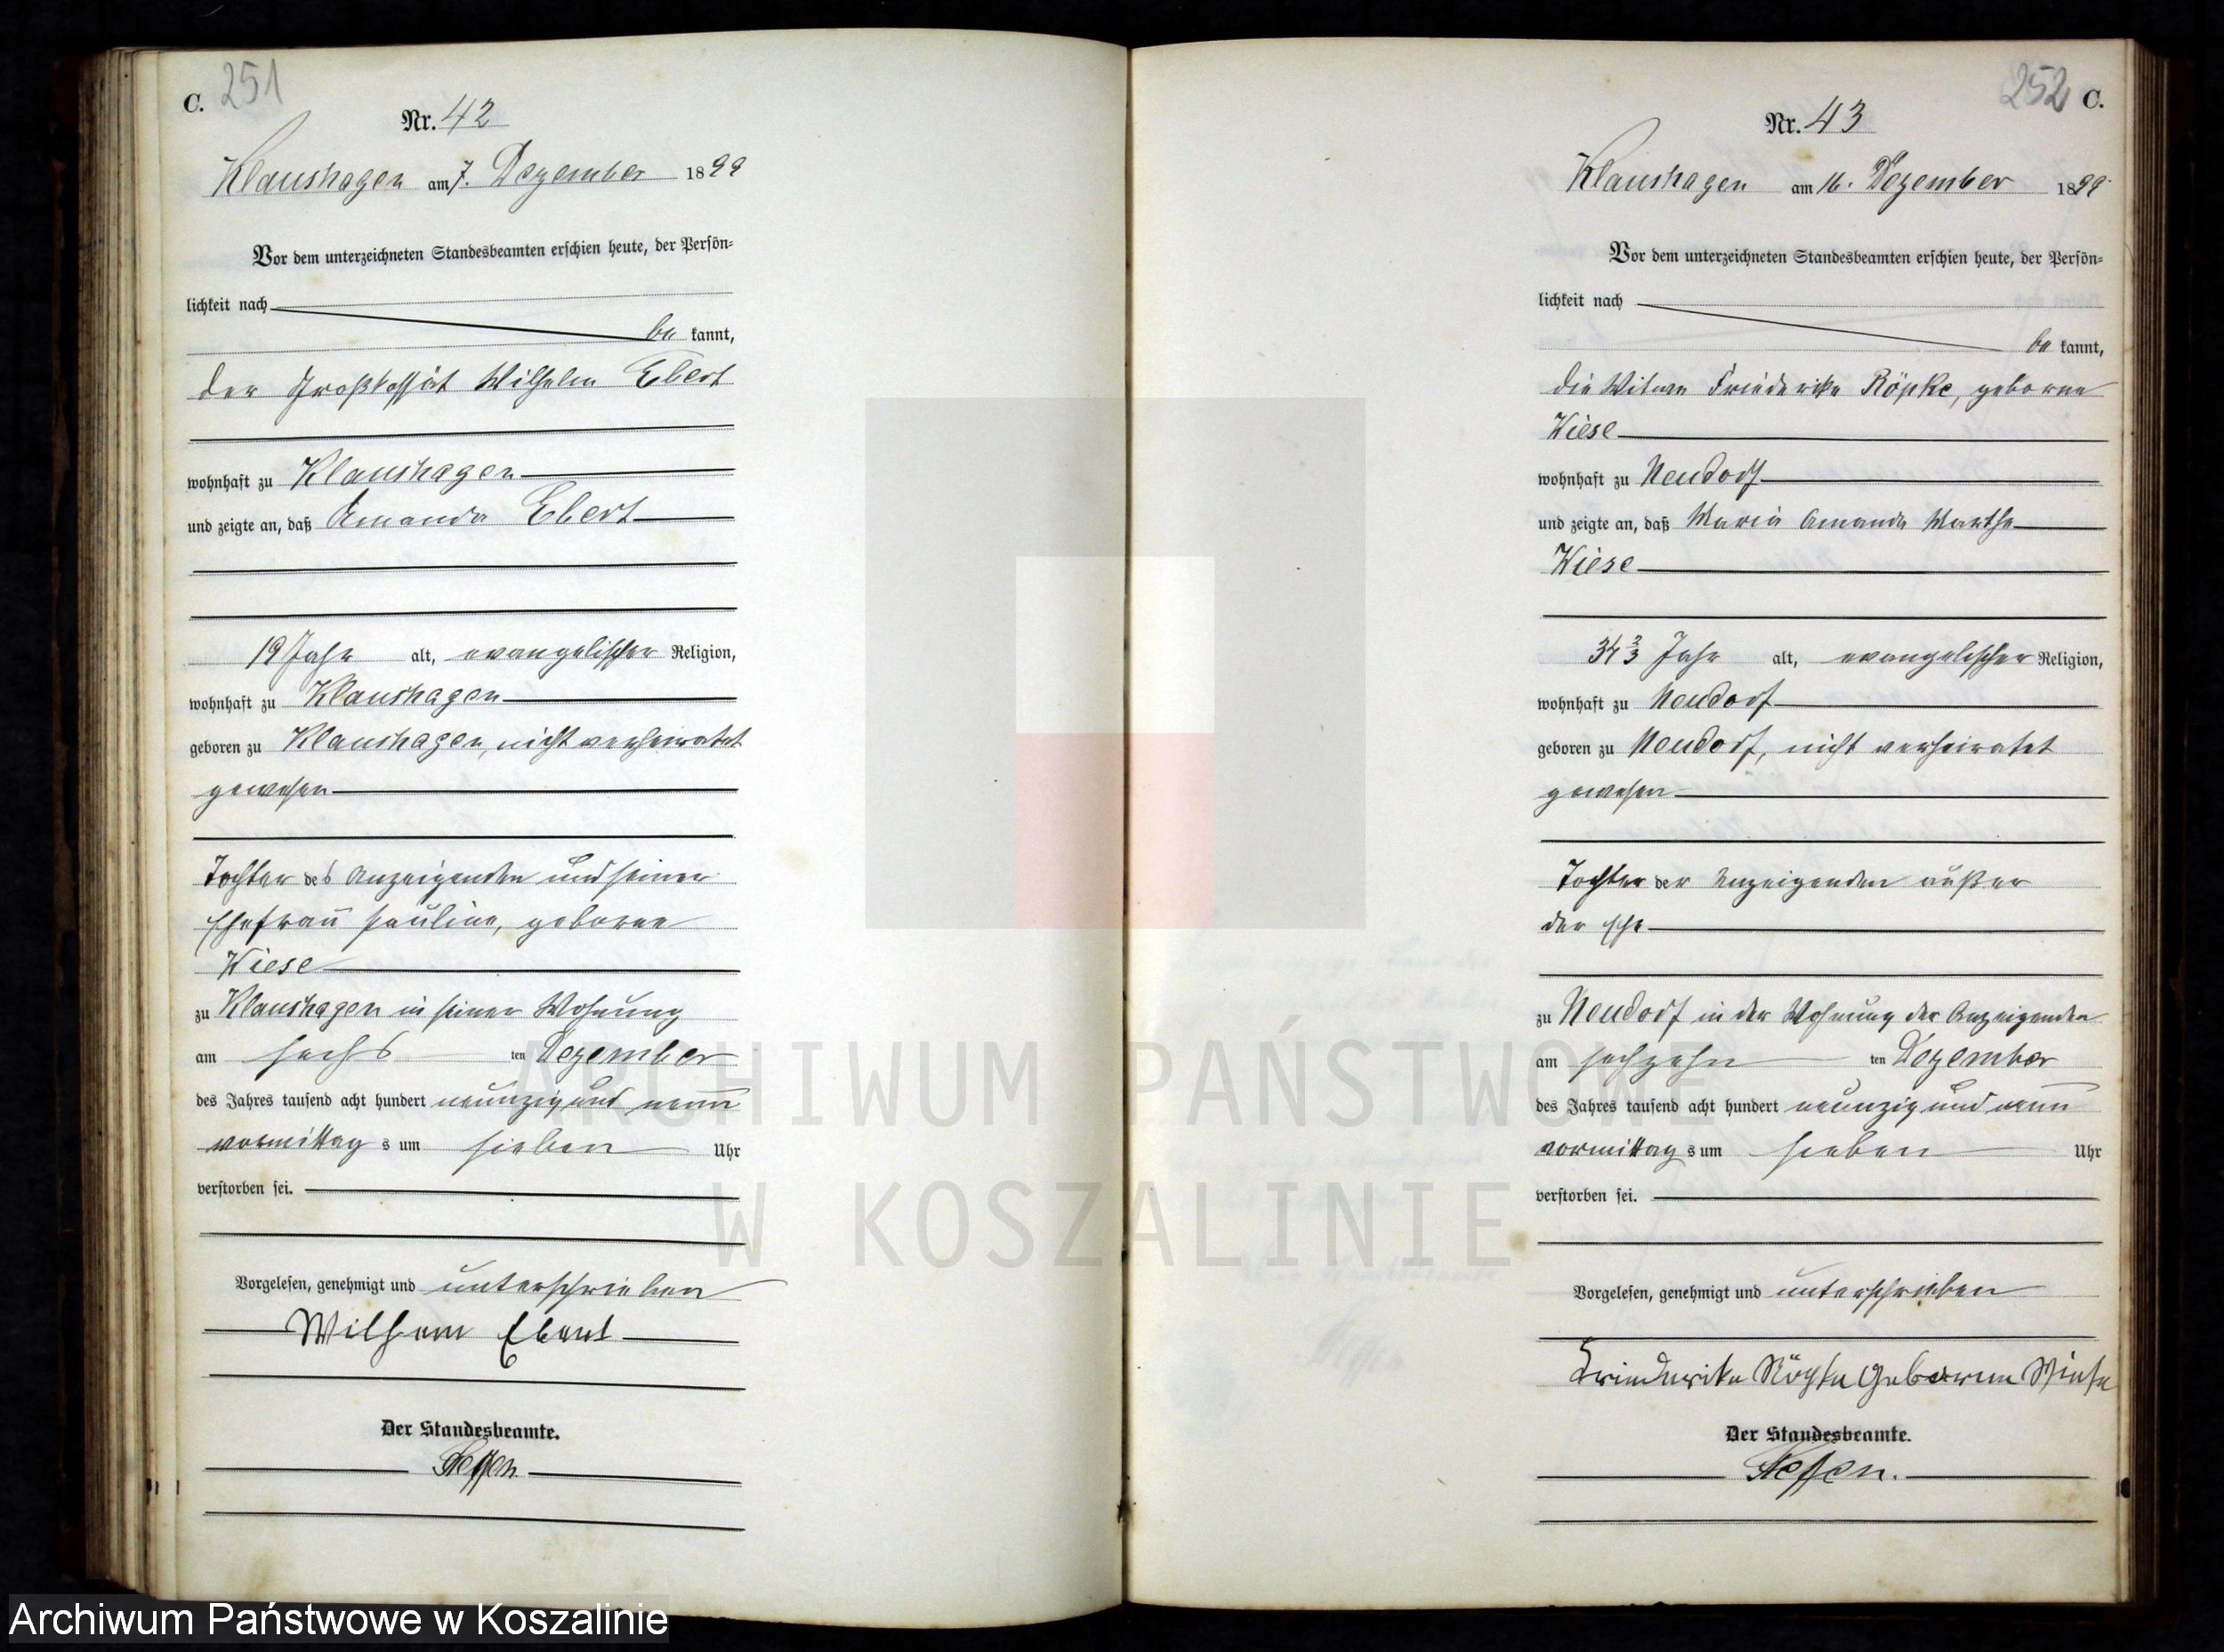 C. 251
Nr. 42
Klaushagen am 7. Dezember 1899
Vor dem unterzeichneten Standesbeamten erschien heute, der Persön-
lichkeit nach
be kannt,
der Großkossät Wilhelm Ebert
wohnhaft zu Klaushagen
und zeigte an, daß Amanda Ebert
19 Jahr alt, evangelischer Religion,
wohnhaft zu Klaushagen
geboren zu Klaushagen, nicht verheiratet
gewesen
Tochter des Anzeigenden und seiner
Ehefrau Pauline, geborne
Wiese
zu Klaushagen in seiner Wohnung
am sechs ten Dezember
des Jahres tausend acht hundert neunzig und neun
vormittag s um sieben Uhr
verstorben sei.
Vorgelesen, genehmigt und unterschrieben
Wilhem Ebert
Der Standesbeamte.
252 C.
Nr. 43
Klaushagen am 16. Dezember 1899
Vor dem unterzeichneten Standesbeamten erschien heute, der Persön-
lichkeit nach
be kannt,
die Witwe Friederike Röpke, geborne
Wiese
wohnhaft zu Neudorf
und zeigte an, daß Marie Amanda Marthe
Wiese
34 2/3 Jahr alt, evangelischer Religion,
wohnhaft zu Neudorf
geboren zu Neudorf, nicht verheiratet
gewesen
Tochter der Anzeigenden außer
der Ehe
zu Neudorf in der Wohnung der Anzeigenden
am sechzehn ten Dezember
des Jahres tausend acht hundert neunzig und neun
vormittag s um sieben Uhr
verstorben sei.
Vorgelesen, genehmigt und unterschrieben
Friederike Röpke Geborene Wiese
Der Standesbeamte.
ARCHIWUM PAŃSTWOWE
W KOSZALINIE
Archiwum Państwowe w Koszalinie